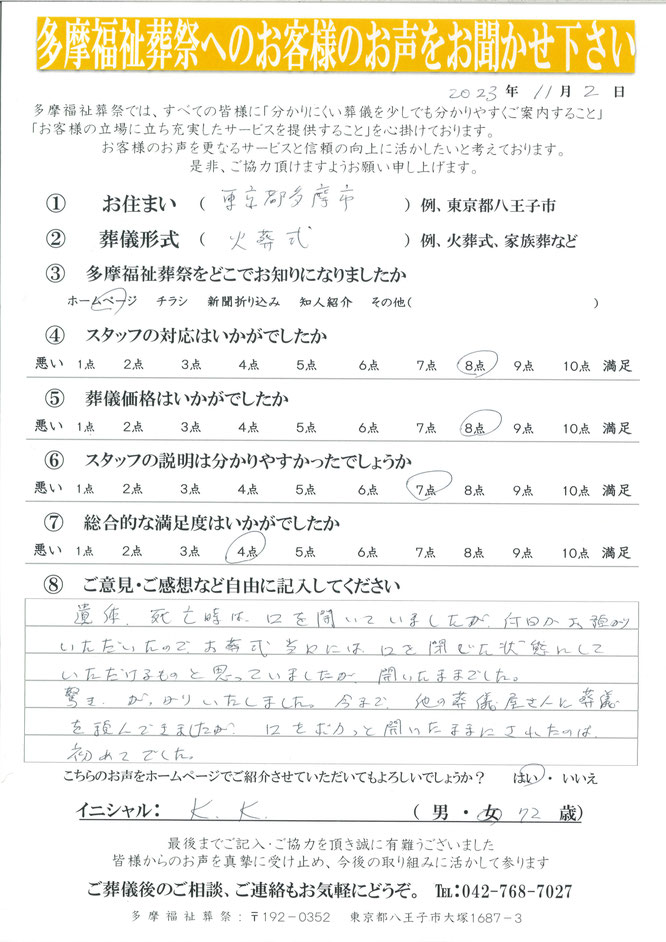 多摩福祉葬祭へのお客様のお声をお聞かせ下さい
2023 年 11 月 2 日
多摩福祉葬祭では、すべての皆様に「分かりにくい葬儀を少しでも分かりやすくご案内すること」
「お客様の立場に立ち充実したサービスを提供すること」を心掛けております。
お客様のお声を更なるサービスと信頼の向上に活かしたいと考えております。
是非、ご協力頂けますようお願い申し上げます。
① お住まい ( 東京都多摩市 ) 例、東京都八王子市
② 葬儀形式 ( 火葬式 ) 例、火葬式、家族葬など
③ 多摩福祉葬祭をどこでお知りになりましたか
ホームページ チラシ 新聞折り込み 知人紹介 その他( )
④ スタッフの対応はいかがでしたか
悪い 1点 2点 3点 4点 5点 6点 7点 8点 9点 10点 満足
⑤ 葬儀価格はいかがでしたか
悪い 1点 2点 3点 4点 5点 6点 7点 8点 9点 10点 満足
⑥ スタッフの説明は分かりやすかったでしょうか
悪い 1点 2点 3点 4点 5点 6点 7点 8点 9点 10点 満足
⑦ 総合的な満足度はいかがでしたか
悪い 1点 2点 3点 4点 5点 6点 7点 8点 9点 10点 満足
⑧ ご意見・ご感想など自由に記入してください
遺体、死亡時は、口を開いていましたが、何日かお預かり
いただいたので、お葬式当日には、口を閉じた状態にして
いただけるものと思っていましたが、開いたままでした。
驚き、がっかりいたしました。今まで、他の葬儀屋さんに葬儀
を頼んできましたが、口をポカっと開いたままにされたのは、
初めてでした。
こちらのお声をホームページでご紹介させていただいてもよろしいでしょうか？ はい・いいえ
イニシャル： K. K. ( 男・女 72 歳)
最後までご記入・ご協力を頂き誠に有難うございました
皆様からのお声を真摯に受け止め、今後の取り組みに活かして参ります
ご葬儀後のご相談、ご連絡もお気軽にどうぞ。 TEL：042-768-7027
多摩福祉葬祭：〒192-0352 東京都八王子市大塚1687-3